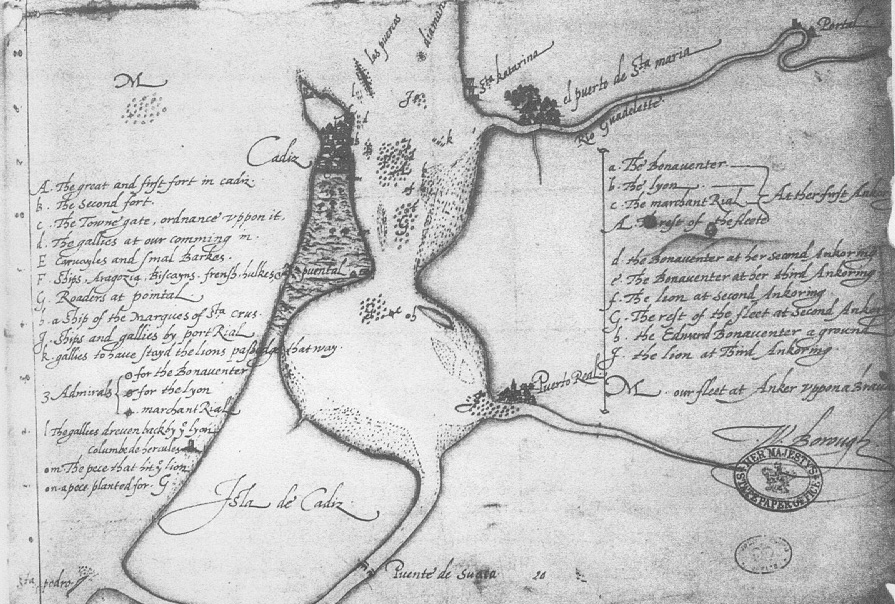 las puercas
diamant
Portal
Sta katarina
el puerto de Sta maria
Rio Guadelette
M
J
k
Cadiz
A. The great and first fort in cadiz
b. The Second fort.
c. The Towne gate, ordnance vppon it.
d. The gallies at our comming in.
E Caruoyles and smal Barkes.
F Ships, Aragozia, Biscayns, frensh, hulkes
G. Roaders at pointal
h. a Ship of the Marques of Sta crus.
J. Ships and gallies by port Rial
k. gallies to haue stayd the lions passadge that way.
3 Admirals
for the Bonauenter
for the Lyon
marchant Rial
l The gallies dreuen back by ye lyon
Columbe de hercules
m. The pece that hit ye lion
n. a pece planted for G
puental
a. The Bonauenter
b. The lyon
c. The marchant Rial
At ther first Ankor
A. rest of the fleete
d. the Bonauenter at her second Ankoring
e. The Bonauenter at her third Ankoring
f. The lion at Second Ankoring
G. The rest of the fleet at Second Anker
h. the Edward Bonauenter a ground
J. the lion at Third Ankoring
M. our fleet at Anker vppon a Braue
Puerto Real
W. Borough
HER MAJESTY'S
STATE PAPER OFFICE
Isla de Cadiz
Puente de Suaca 20
Sta pedro